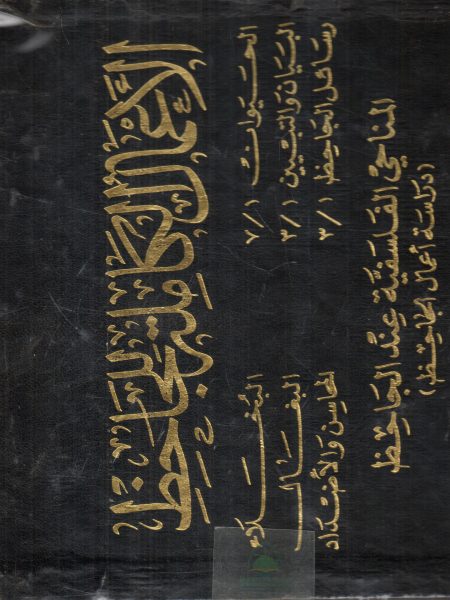 الأعمال الكاملة للجاحظ
الحيوان ٧/١
البخلاء
البيان والتبيين ٣/١
البغال
رسائل الجاحظ ٣/١
المحاسن والأضداد
المناحي الفلسفية عند الجاحظ
(دراسة أعمال الجاحظ)